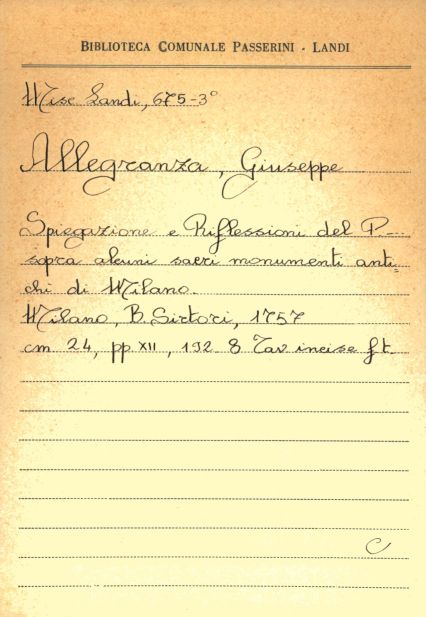 BIBLIOTECA COMUNALE PASSERINI - LANDI
Misc Landi, 675-3°
Allegranza, Giuseppe
Spiegazione e Riflessioni del P...
sopra alcuni sacri monumenti anti=
chi di Milano.
Milano, B. Sirtori, 1757
cm 24, pp. XII, 192. 8 Tav incise f.t.
C